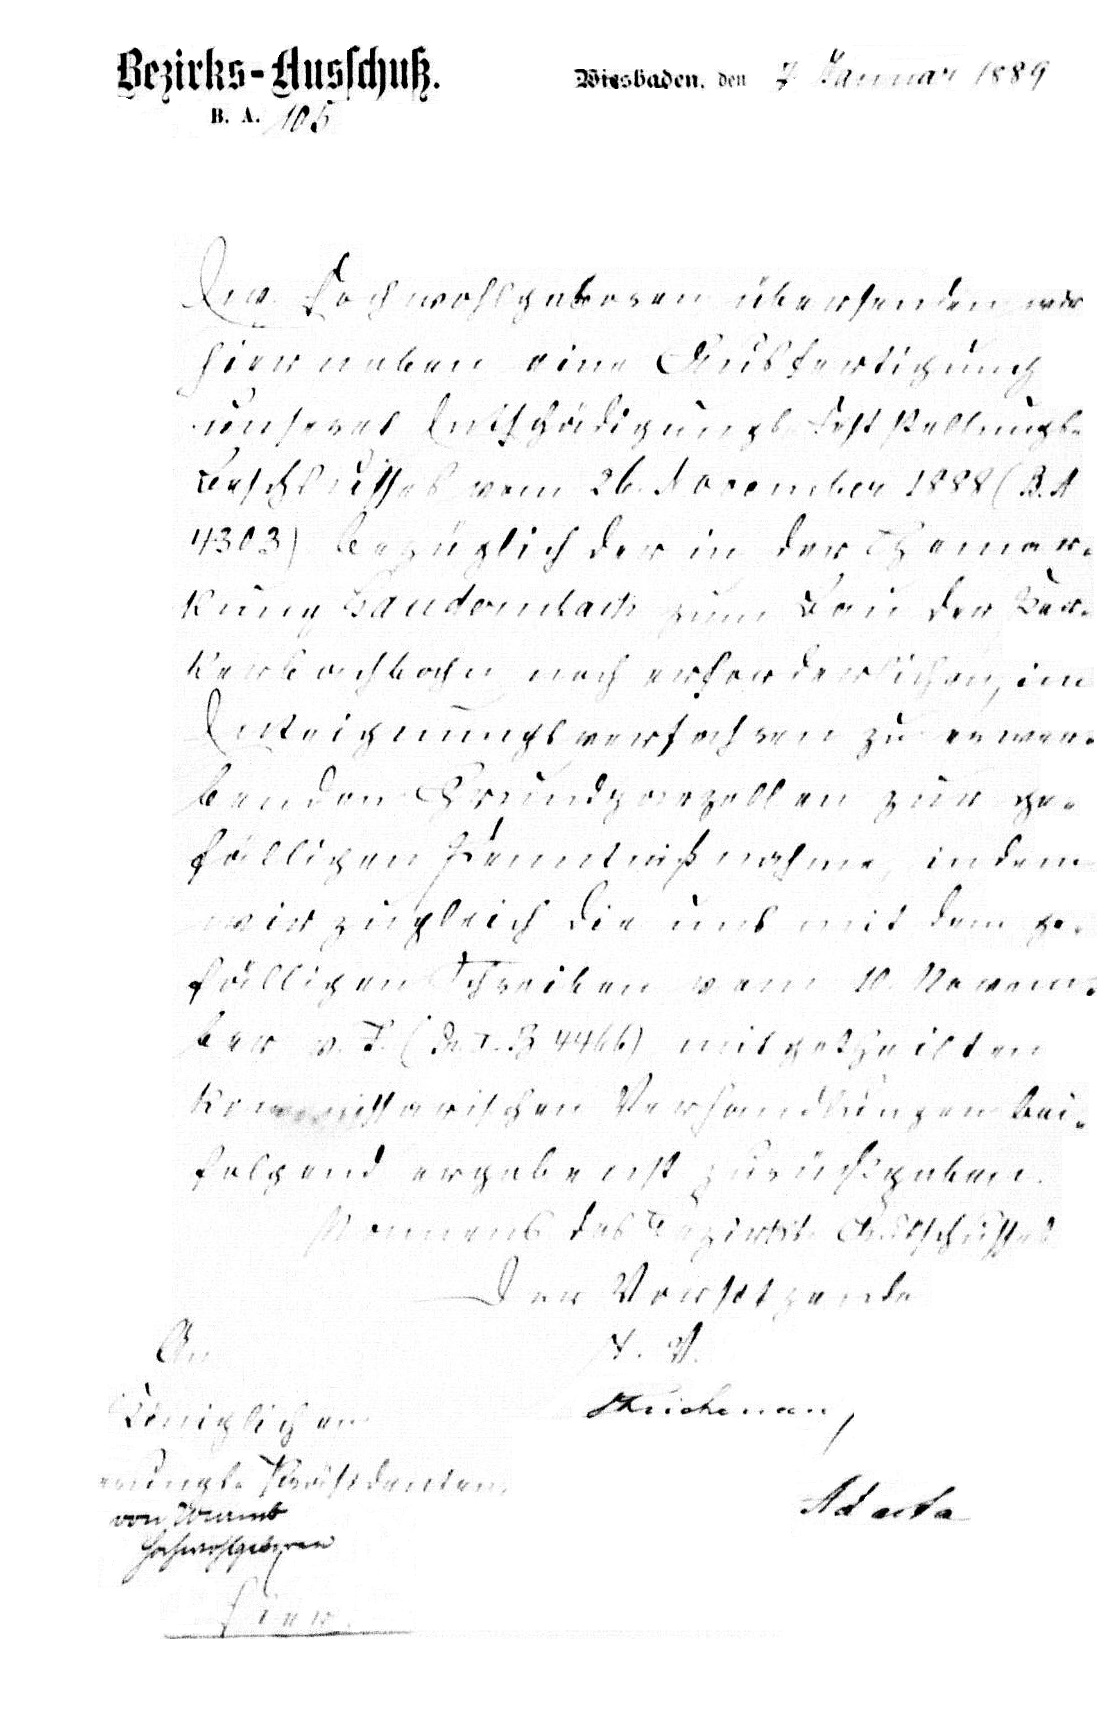 Bezirks-Ausschuß.
Wiesbaden, den 7 Januar 1889
B. A. 105
Ew. Hochwohlgeboren übersenden wir
hierneben eine Ausfertigung
unseres Entschädigungs-Feststellungs-
Beschlusses vom 26. November 1888 (B. A
4303) bezüglich der in der Gemar-
kung Laudenbach zum Bau der Ker-
kerbachbahn noch erforderlichen, im
Enteignungsverfahren zu erwer-
benden Grundparzellen zur ge-
fälligen Kenntnißnahme, indem
wir zugleich die uns mit dem ge-
fälligen Schreiben vom 10. Novem-
ber v. J. (Pr. I. B 4466) mitgetheilten
kommissarischen Verhandlungen bei-
folgend ergebenst zurückgeben.
Namens des Bezirks-Ausschusses
Der Vorsitzende
An
I. V.
Königlichen
-rungs-Präsidenten
von Wurmb
Hochwohlgeboren
Ad acta
hier.